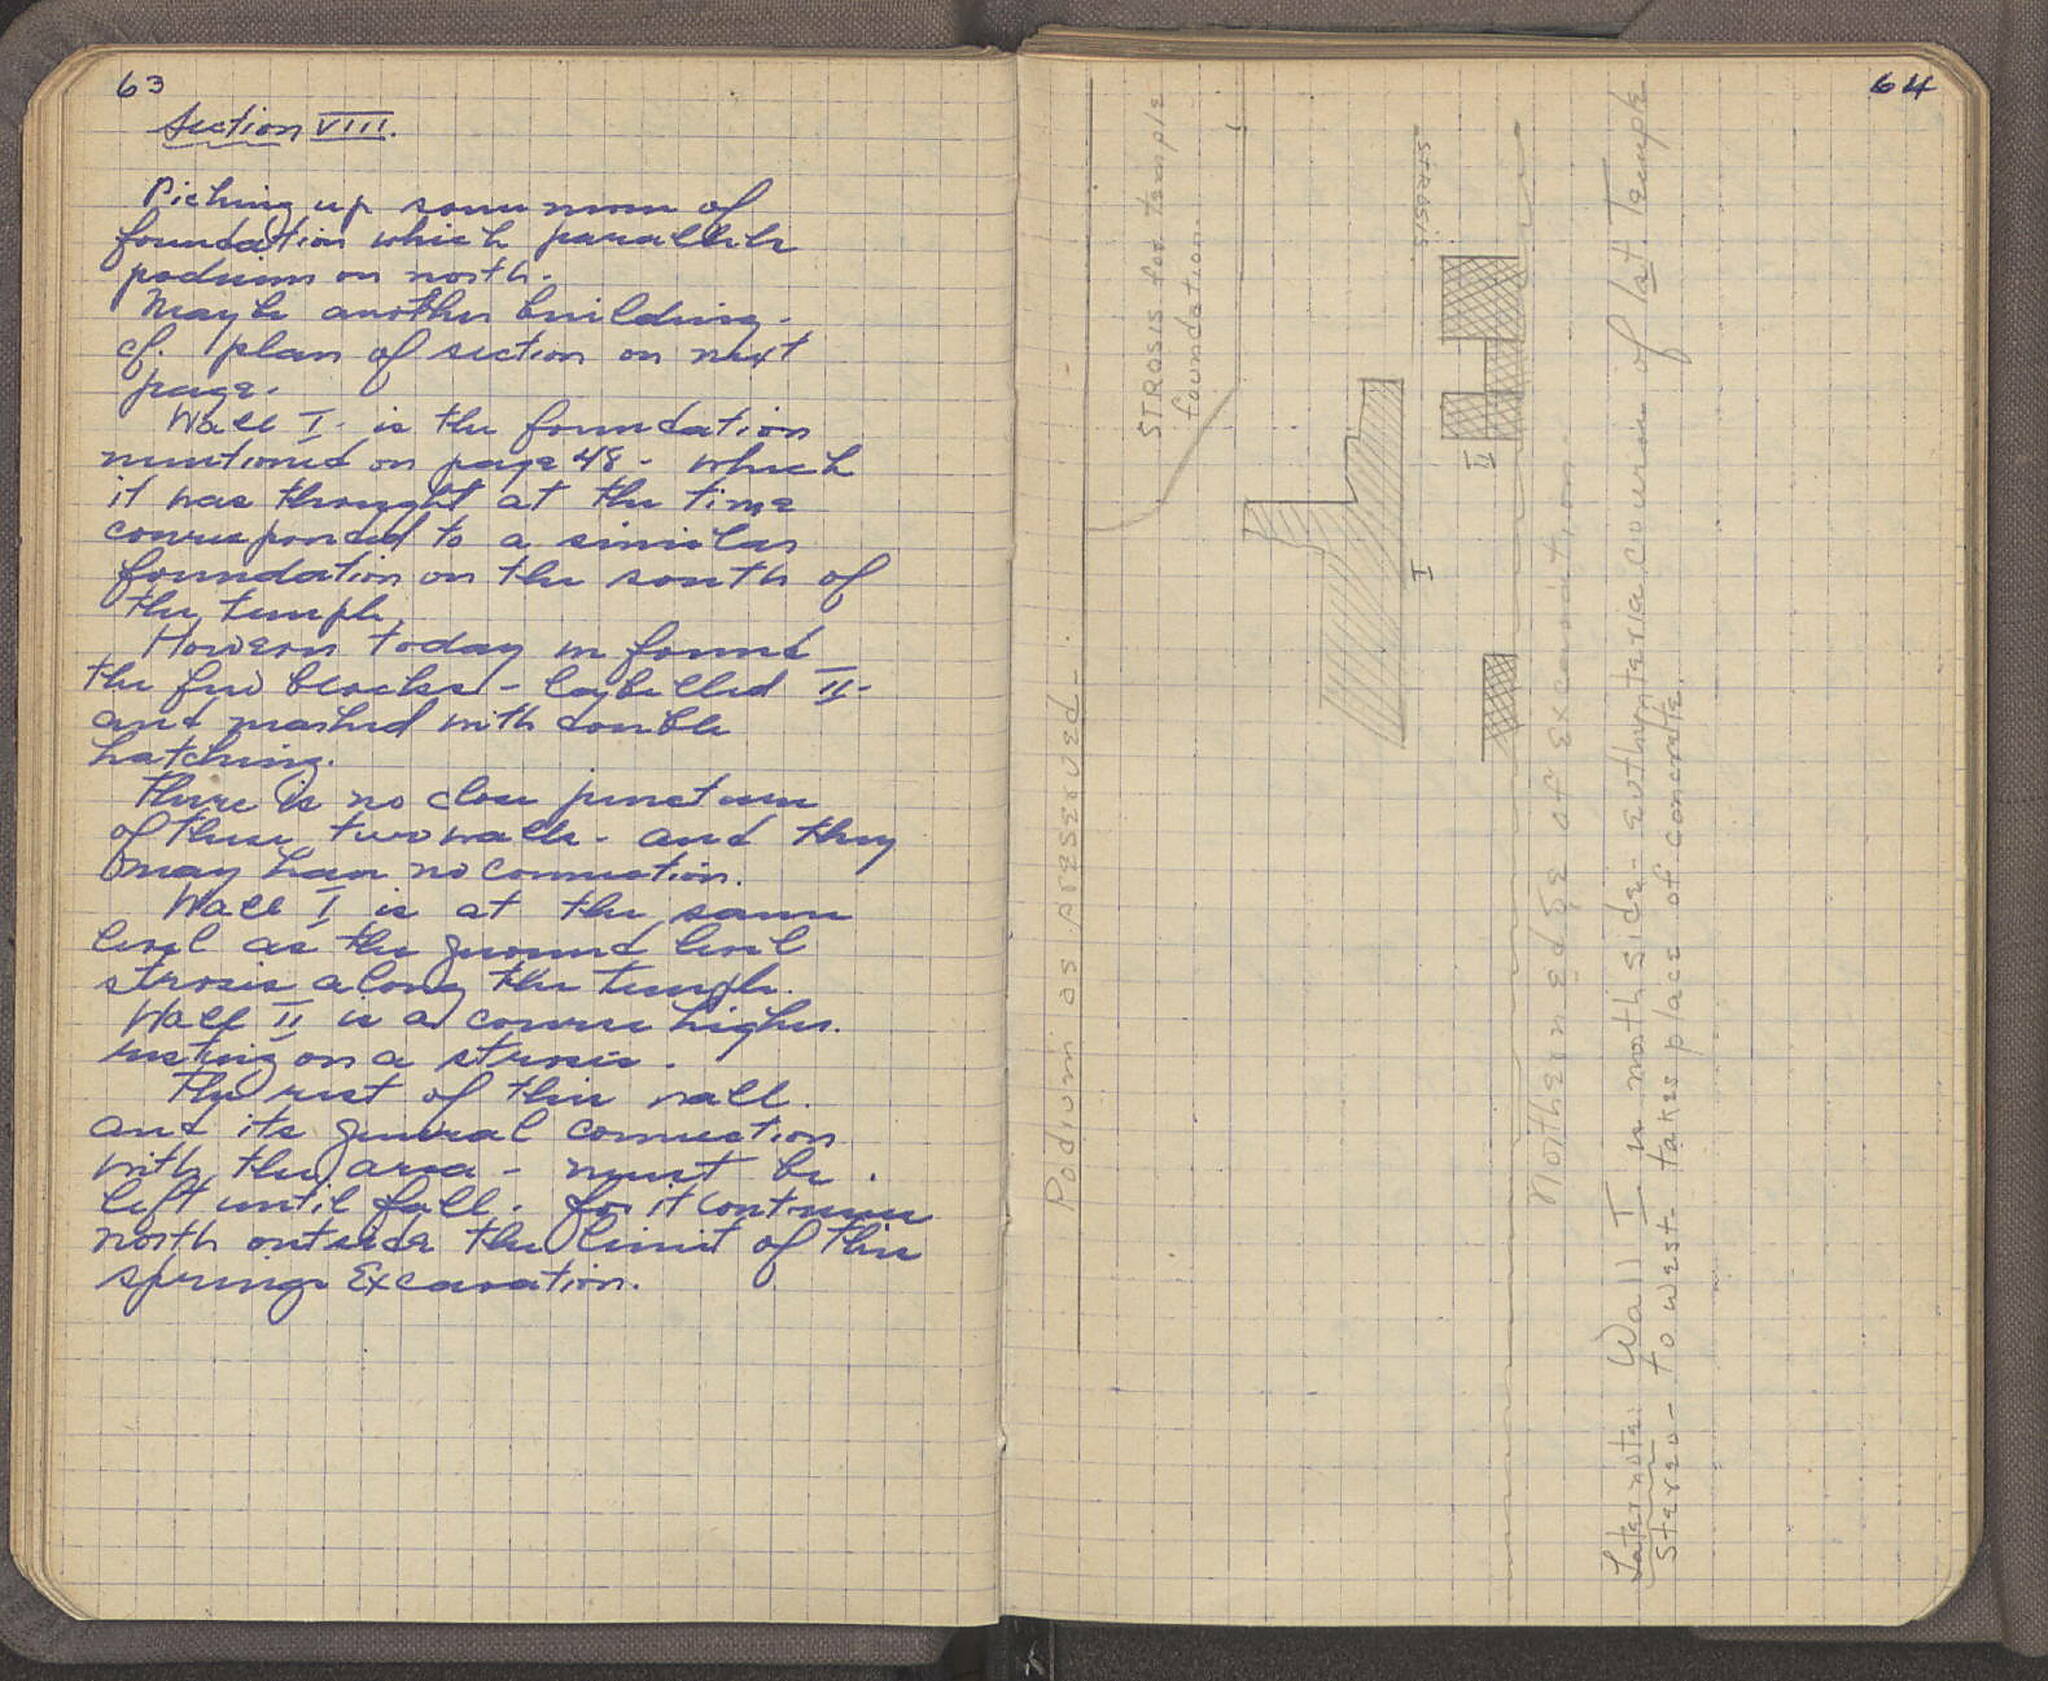 63
Section VIII.
Picking up some more of
foundation which parallels
podium on north.
Maybe another building.
cf. plan of section on next
page.
Wall I. is the foundation
mentioned on page 48 - which
it was thought at the time
corresponded to a similar
foundation on the south of
the temple.
However today we found
the few blocks - laybelled II -
and marked with double
hatching.
There is no close juncture
of these two walls - and they
may have no connection.
Wall I is at the same
level as the ground level
strosis along the temple.
Wall II is a course higher.
resting on a strosis.
The rest of this wall.
and its general connection
with the area - must be.
left until fall. for it continues
north outside the limit of this
springs Excavation.
64
Podium as preserved.
STROSIS for temple
foundation.
STROSIS
I
II
Northern edge of Excavation.
Later note: Wall I is north side - euthynteria course of 1st Temple
Stereo - to west. takes place of concrete.